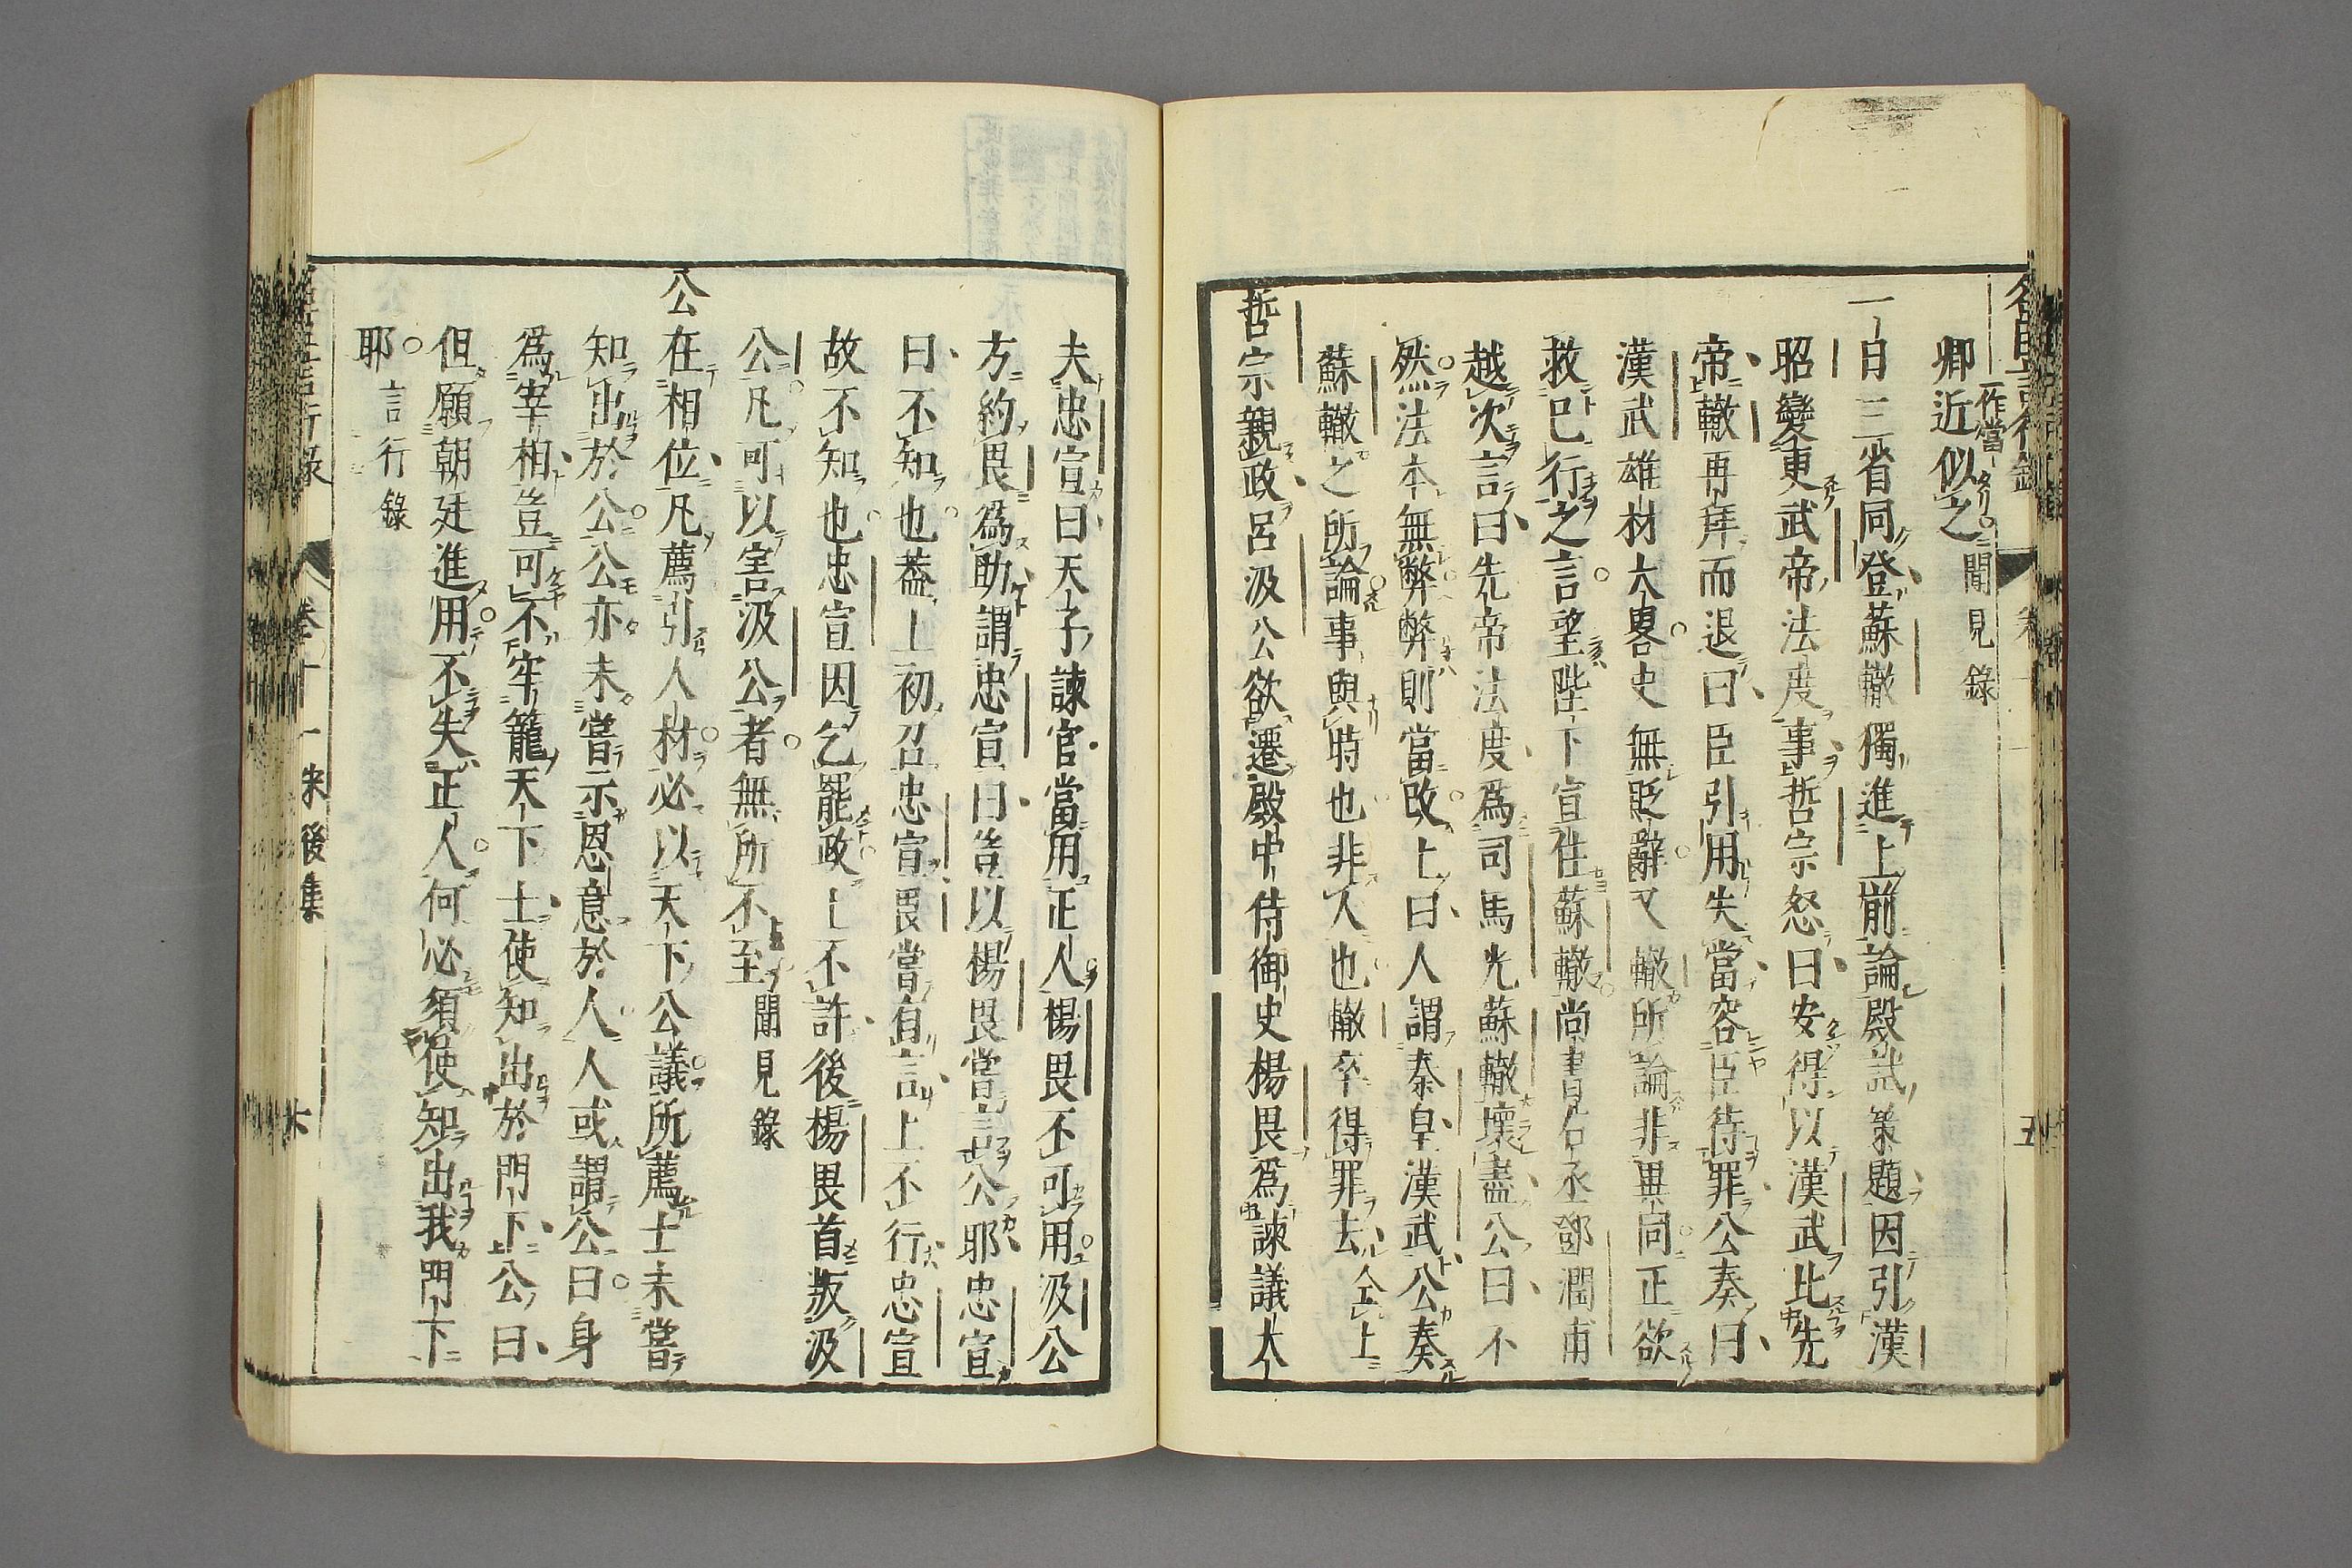 卿近似之 一作當 聞見錄
一日三省同登蘇轍獨進上前論殿試策題因引漢
昭變更武帝法度事哲宗怒曰安得以漢武比先
帝轍再拜而退曰臣引用失當容臣待罪公奏曰
漢武雄材大畧史無貶辭又轍所論非異同正欲
救已行之言望陛下宣徃蘇轍尚書右丞鄧潤甫
越次言曰先帝法度爲司馬光蘇轍壞盡公曰不
然法本無弊弊則當改上曰人謂秦皇漢武公奏
蘇轍之所論事與時也非人也轍卒得罪去全上
哲宗親政呂汲公欲遷殿中侍御史楊畏爲諫議大
夫忠宣曰天子諫官當用正人楊畏不可用汲公
方約畏爲助謂忠宣曰豈以楊畏嘗言公耶忠宣
曰不知也葢上初召忠宣畏嘗有言上不行忠宣
故不知也忠宣因乞罷政上不許後楊畏首叛汲
公凡可以害汲公者無所不至 聞見錄
公在相位凡薦引人材必以天下公議所薦士未嘗
知出於公公亦未嘗示恩意於人人或謂公曰身
爲宰相豈可不牢籠天下士使知出於門下公曰
但願朝廷進用不失正人何必須使知出我門下
耶 言行錄
卷十一 宋後集
六
五